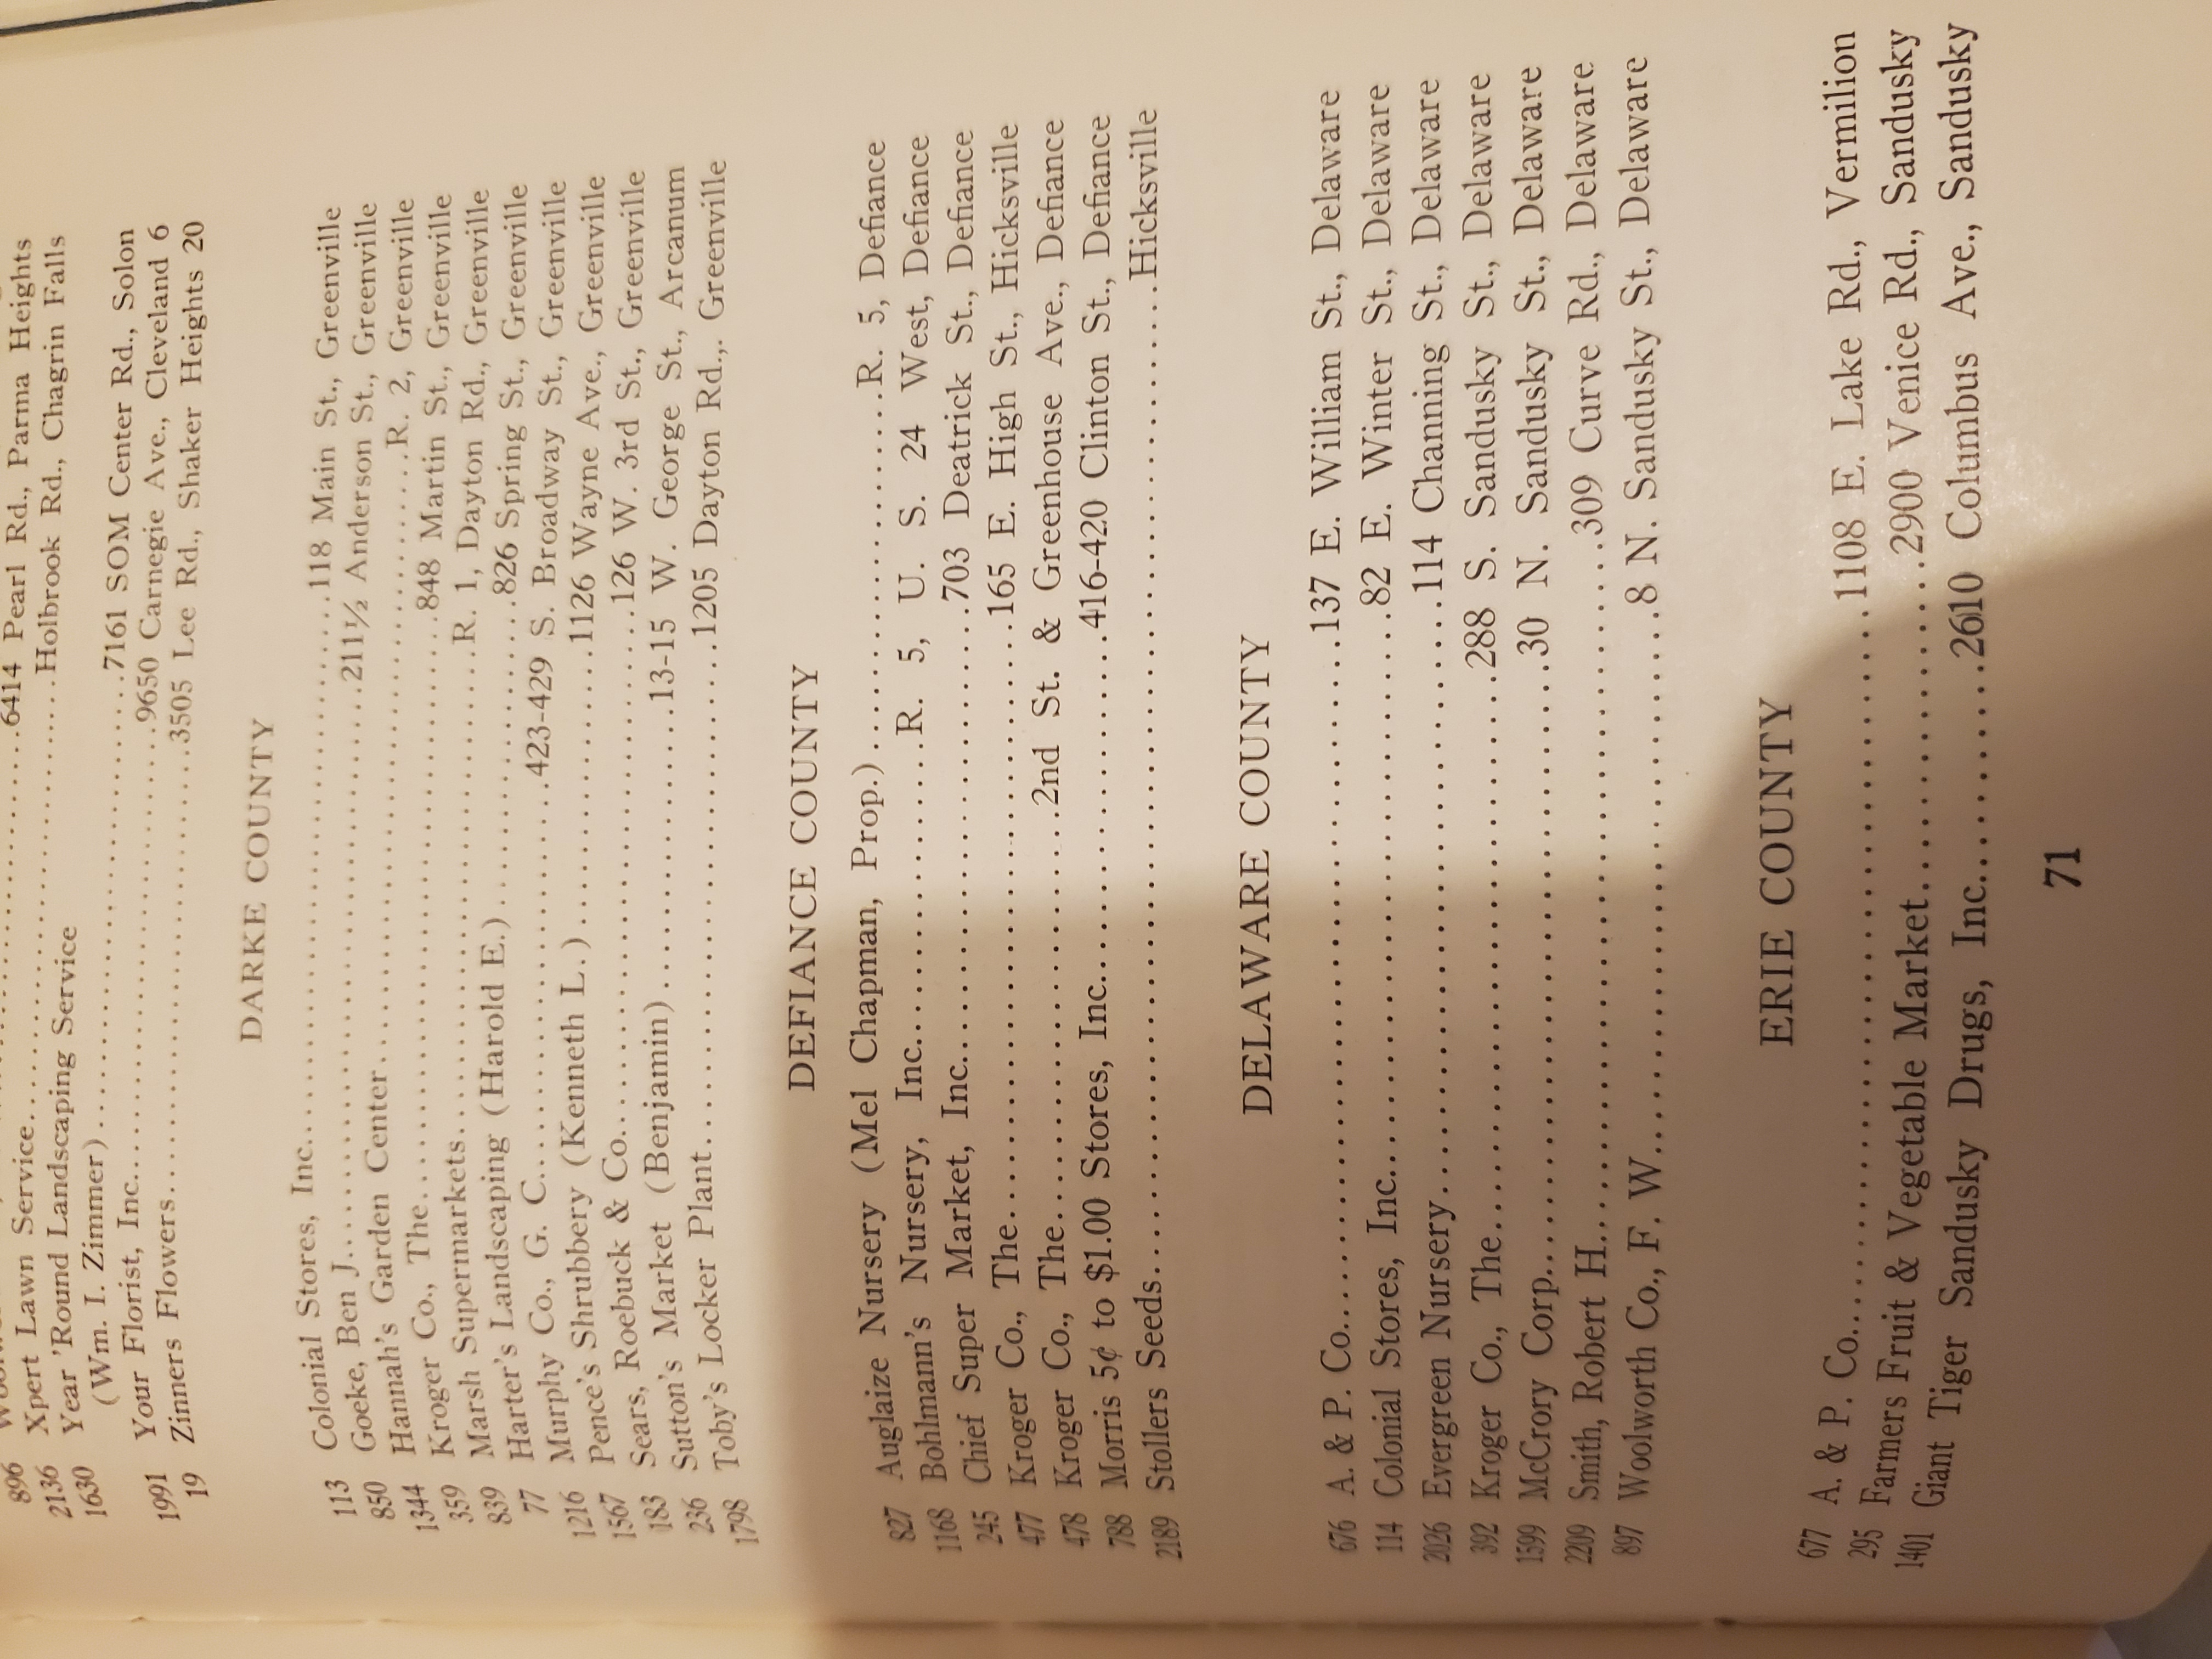 6414 Pearl Rd., Parma Heights
2136 Xpert Lawn Service..........Holbrook Rd., Chagrin Falls
1630 Year 'Round Landscaping Service
(Wm. I. Zimmer)..........7161 SOM Center Rd., Solon
1991 Your Florist, Inc..........9650 Carnegie Ave., Cleveland 6
19 Zinners Flowers..........3505 Lee Rd., Shaker Heights 20
DARKE COUNTY
113 Colonial Stores, Inc..........118 Main St., Greenville
850 Goeke, Ben J..........211½ Anderson St., Greenville
1344 Hannah's Garden Center..........R. 2, Greenville
359 Kroger Co., The..........848 Martin St., Greenville
839 Marsh Supermarkets..........R. 1, Dayton Rd., Greenville
77 Harter's Landscaping (Harold E.)..........826 Spring St., Greenville
1216 Murphy Co., G. C..........423-429 S. Broadway St., Greenville
1567 Pence's Shrubbery (Kenneth L.)..........1126 Wayne Ave., Greenville
183 Sears, Roebuck & Co..........126 W. 3rd St., Greenville
236 Sutton's Market (Benjamin)..........13-15 W. George St., Arcanum
1798 Toby's Locker Plant..........1205 Dayton Rd,. Greenville
DEFIANCE COUNTY
827 Auglaize Nursery (Mel Chapman, Prop.)..........R. 5, Defiance
1168 Bohlmann's Nursery, Inc..........R. 5, U. S. 24 West, Defiance
245 Chief Super Market, Inc..........703 Deatrick St., Defiance
477 Kroger Co., The..........165 E. High St., Hicksville
478 Kroger Co., The..........2nd St. & Greenhouse Ave., Defiance
788 Morris 5¢ to $1.00 Stores, Inc..........416-420 Clinton St., Defiance
2189 Stollers Seeds..........Hicksville
DELAWARE COUNTY
676 A. & P. Co..........137 E. William St., Delaware
114 Colonial Stores, Inc..........82 E. Winter St., Delaware
2026 Evergreen Nursery..........114 Channing St., Delaware
392 Kroger Co., The..........288 S. Sandusky St., Delaware
1599 McCrory Corp..........30 N. Sandusky St., Delaware
2209 Smith, Robert H..........309 Curve Rd., Delaware
897 Woolworth Co., F. W..........8 N. Sandusky St., Delaware
ERIE COUNTY
677 A. & P. Co..........1108 E. Lake Rd., Vermilion
295 Farmers Fruit & Vegetable Market..........2900 Venice Rd., Sandusky
1401 Giant Tiger Sandusky Drugs, Inc..........2610 Columbus Ave., Sandusky
71